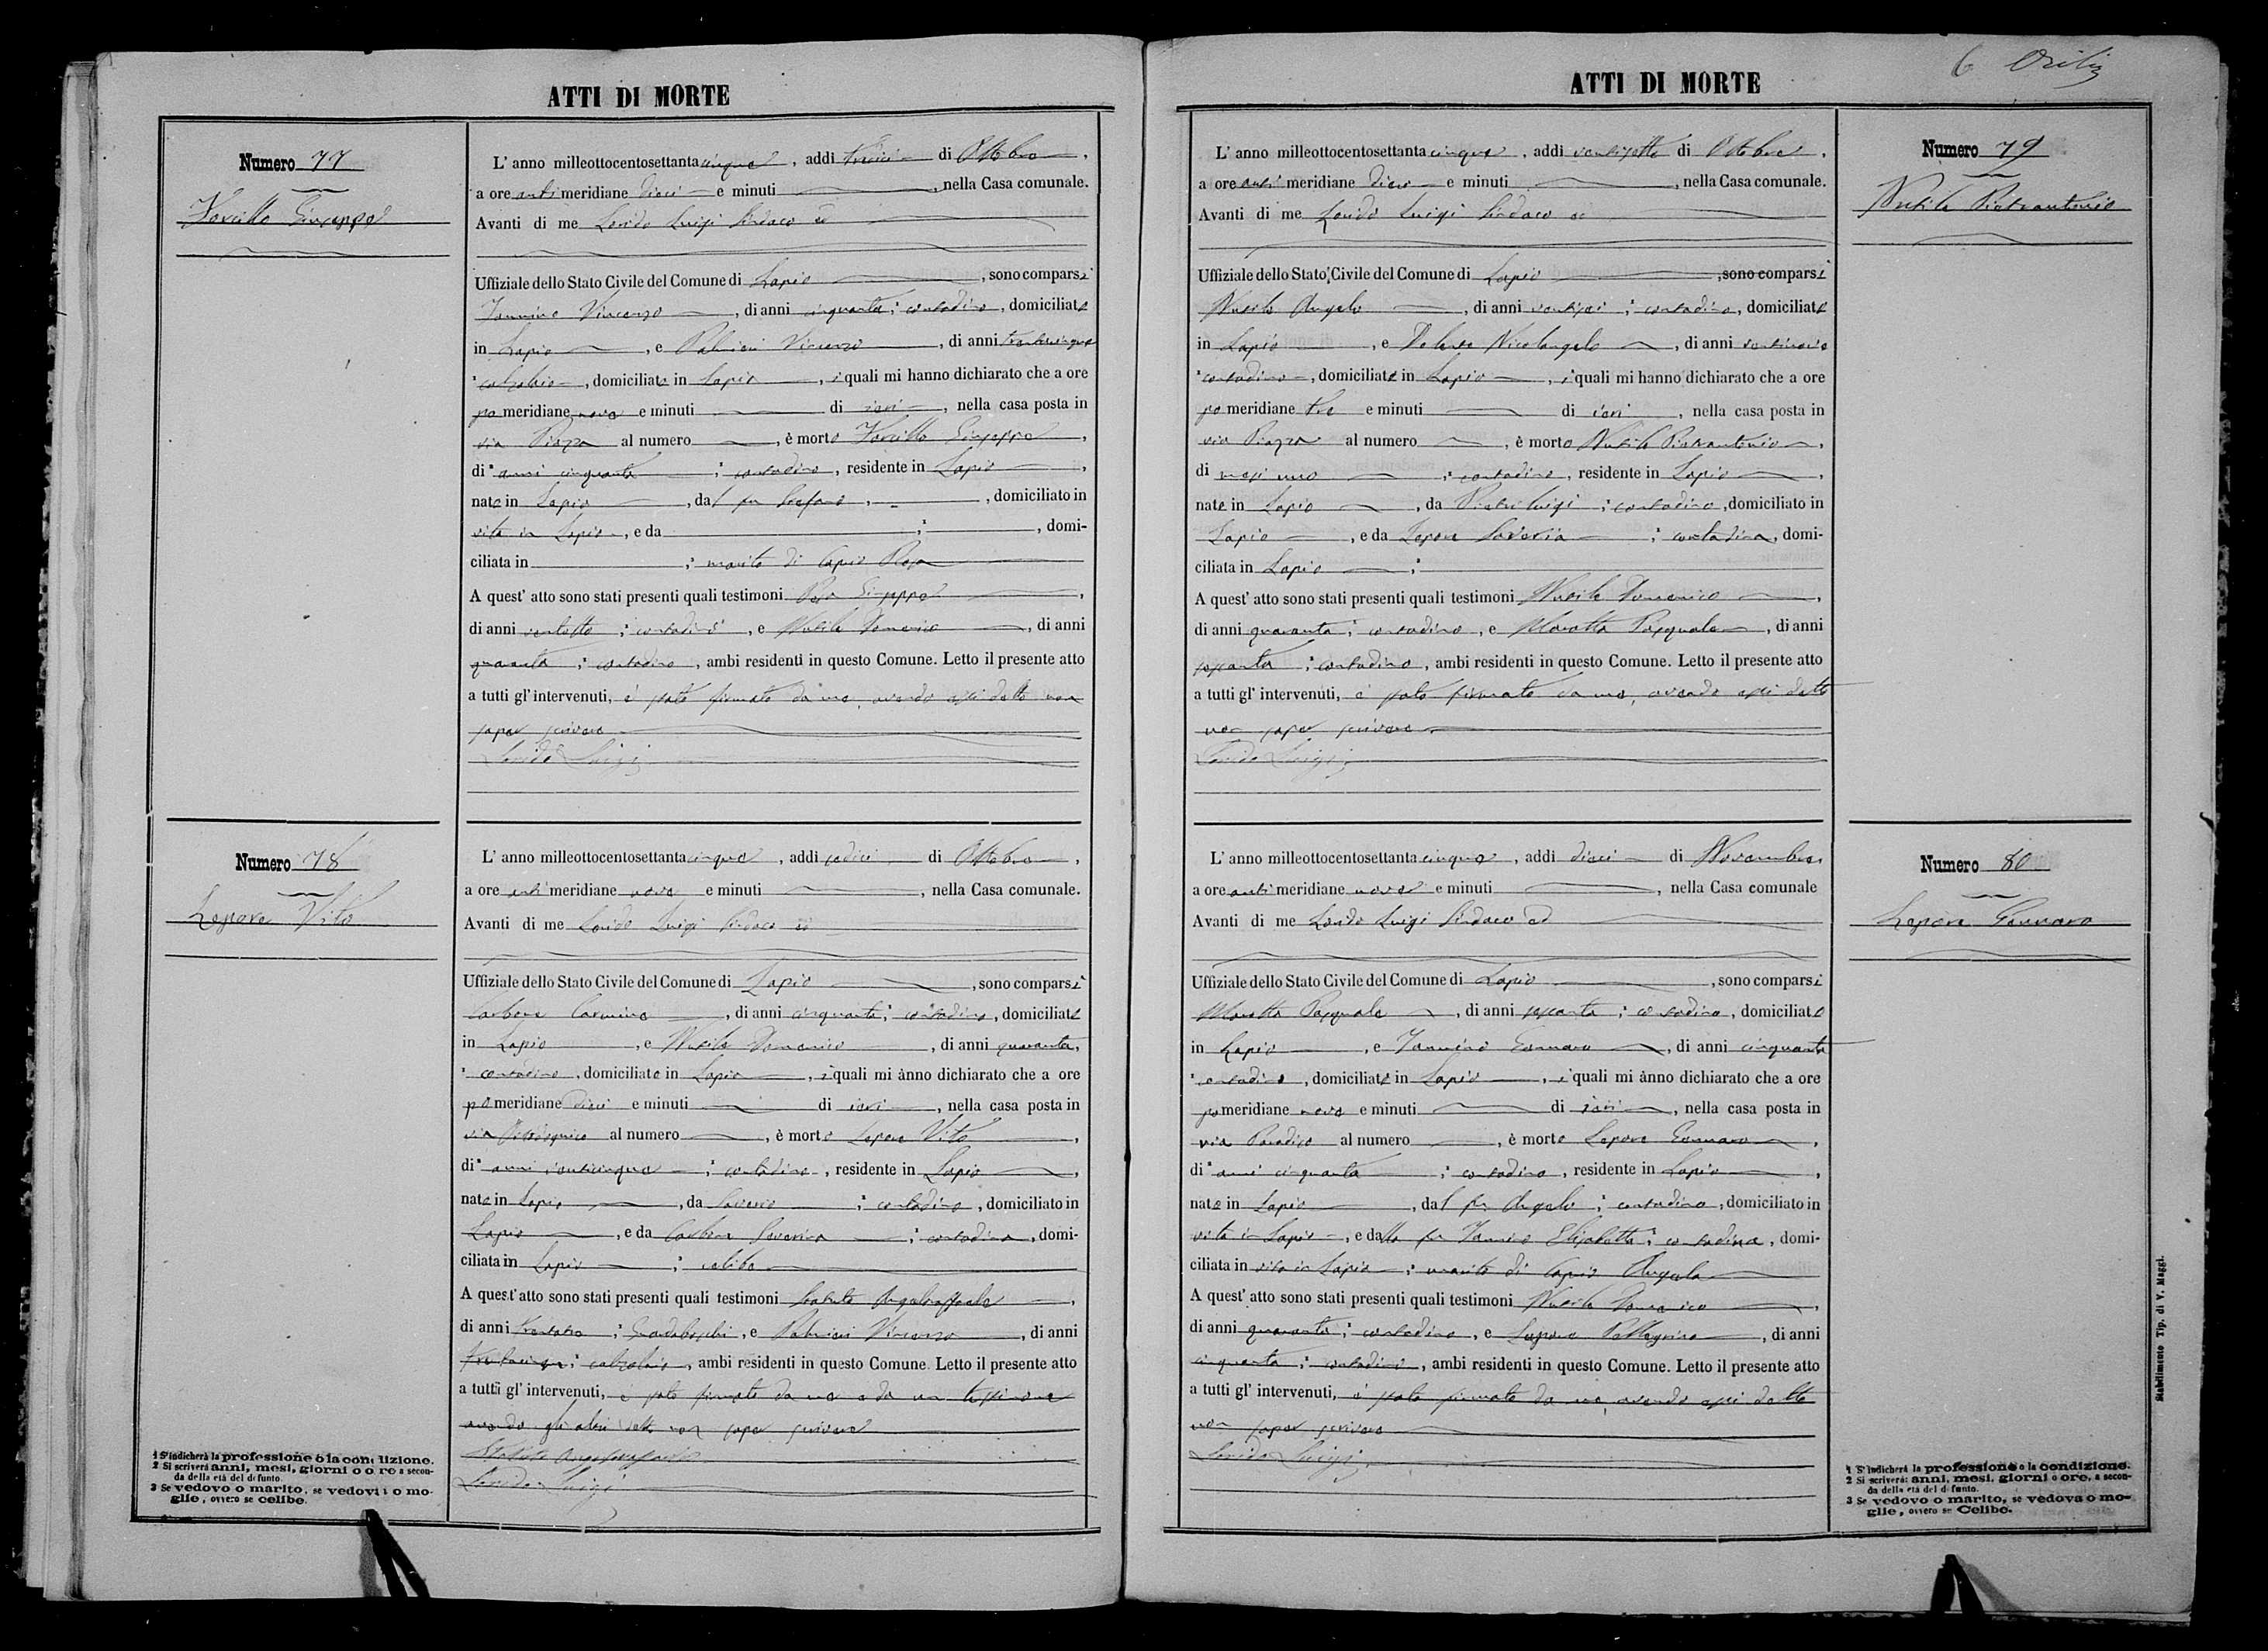 ATTI DI MORTE
Numero 77
Giuseppe
L' anno milleottocentosettanta cinque, addì tredici di Ottobre,
a ore anti meridiane dieci e minuti, nella Casa comunale.
Avanti di me Luigi Sindaco ed
Uffiziale dello Stato Civile del Comune di Lapio, sono comparsi
Iannino Vincenzo, di anni cinquanta; contadino, domiciliato
in Lapio, e Vincenzo, di anni trentacinque
calzolaio, domiciliato in Lapio, i quali mi hanno dichiarato che a ore
pomeridiane nove e minuti di ieri, nella casa posta in
via Piazza al numero, è morto Giuseppe,
di anni cinquanta; contadino, residente in Lapio,
nato in Lapio, dal fu Stefano, domiciliato in
vita in Lapio, e da ; , domi-
ciliata in ; marito di Caprio Rosa
A quest' atto sono stati presenti quali testimoni Giuseppe,
di anni ventotto; contadino, e Nubile Domenico, di anni
quaranta; contadino, ambi residenti in questo Comune. Letto il presente atto
a tutti gl' intervenuti, è stato firmato da me, avendo essi detto non
saper scrivere
Luigi
Numero 78
Lepore Vito
L' anno milleottocentosettanta cinque, addì sedici di Ottobre,
a ore anti meridiane nove e minuti, nella Casa comunale.
Avanti di me Luigi Sindaco ed
Uffiziale dello Stato Civile del Comune di Lapio, sono comparsi
Carbone Carmine, di anni cinquanta; contadino, domiciliato
in Lapio, e Nubile Domenico, di anni quaranta,
contadino, domiciliato in Lapio, i quali mi ànno dichiarato che a ore
pomeridiane dieci e minuti di ieri, nella casa posta in
via al numero, è morto Lepore Vito,
di anni venticinque; contadino, residente in Lapio,
nato in Lapio, da Saverio; contadino, domiciliato in
Lapio, e da Carbone Severina; contadina, domi-
ciliata in Lapio; celibe
A quest' atto sono stati presenti quali testimoni Angeloraffaele,
di anni; , e Vincenzo, di anni
trentacinque; calzolaio, ambi residenti in questo Comune. Letto il presente atto
a tutti gl' intervenuti, è stato firmato da me e da un testimone
avendo gli altri detto non saper scrivere
Luigi
1 S'indicherà la professione o la condizione.
2 Si scriverà anni, mesi, giorni o ore a secon-
da della età del defunto.
3 Se vedovo o marito, se vedova o mo-
glie, ovvero se celibe.
ATTI DI MORTE
6
Numero 79
Nubile Pietrantonio
L' anno milleottocentosettanta cinque, addì ventisette di Ottobre,
a ore anti meridiane dieci e minuti, nella Casa comunale.
Avanti di me Luigi Sindaco ed
Uffiziale dello Stato Civile del Comune di Lapio, sono comparsi
Nubile Angelo, di anni ventisei; contadino, domiciliato
in Lapio, e Nicolangelo, di anni ventinove
contadino, domiciliato in Lapio, i quali mi hanno dichiarato che a ore
pomeridiane tre e minuti di ieri, nella casa posta in
via Piazza al numero, è morto Nubile Pietrantonio,
di mesi uno; contadino, residente in Lapio,
nato in Lapio, da Pietro Luigi; contadino, domiciliato in
Lapio, e da Lepore Saveria; contadina, domi-
ciliata in Lapio;
A quest' atto sono stati presenti quali testimoni Nubile Domenico,
di anni quaranta; contadino, e Marotta Pasquale, di anni
sessanta; contadino, ambi residenti in questo Comune. Letto il presente atto
a tutti gl' intervenuti, è stato firmato da me, avendo essi detto
non saper scrivere
Luigi
Numero 80
Lepore Gennaro
L' anno milleottocentosettanta cinque, addì dieci di Novembre,
a ore anti meridiane nove e minuti, nella Casa comunale
Avanti di me Luigi Sindaco ed
Uffiziale dello Stato Civile del Comune di Lapio, sono comparsi
Marotta Pasquale, di anni sessanta; contadino, domiciliato
in Lapio, e Iannino Gennaro, di anni cinquanta
contadino, domiciliato in Lapio, i quali mi ànno dichiarato che a ore
pomeridiane nove e minuti di ieri, nella casa posta in
via Paradiso al numero, è morto Lepore Gennaro,
di anni cinquanta; contadino, residente in Lapio,
nato in Lapio, dal fu Angelo; contadino, domiciliato in
vita in Lapio, e dalla fu Iannino Elisabetta; contadina, domi-
ciliata in vita in Lapio; marito di Caprio Angela
A quest' atto sono stati presenti quali testimoni Nubile Domenico,
di anni quaranta; contadino, e Lepore Pellegrino, di anni
cinquanta; contadino, ambi residenti in questo Comune. Letto il presente atto
a tutti gl' intervenuti, è stato firmato da me, avendo essi detto
non saper scrivere
Luigi
1 S'indicherà la professione o la condizione.
2 Si scriverà: anni, mesi, giorni o ore, a secon-
da della età del defunto.
3 Se vedovo o marito, se vedova o mo-
glie, ovvero se Celibe.
Stabilimento Tip. di V. Maggi.